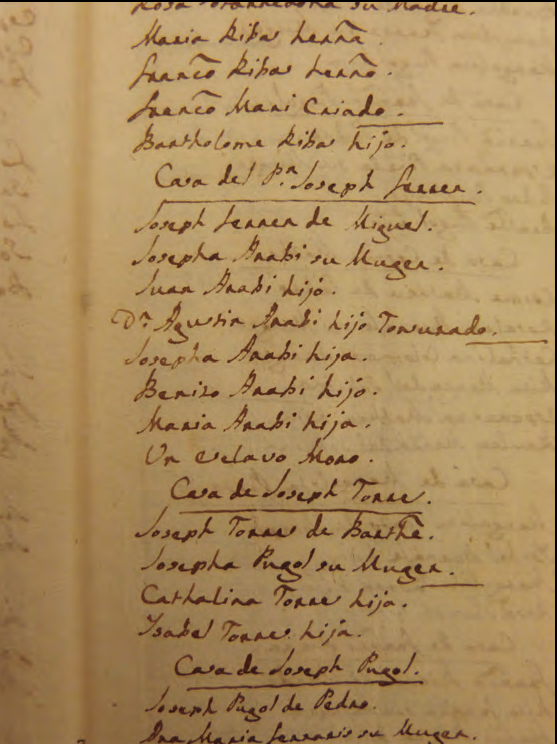 su Madre.
Maria Ribas herña.
Franco Ribas herño.
Franco Mari Criado.
Bartholome Ribas hijo.
Casa del Pn Joseph Ferrer.
Joseph Ferrer de Miguel.
Josepha Arabi su Muger.
Juan Arabi hijo.
Dn Agustin Arabi hijo Tonsurado.
Josepha Arabi hija.
Benito Arabi hijo.
Maria Arabi hija.
Un esclavo Moro.
Casa de Joseph Torres.
Joseph Torres de Barthe.
Josepha Pugol su Muger.
Cathalina Torres hija.
Isabel Torres hija.
Casa de Joseph Pugol.
Joseph Pugol de Pedro.
Dna Maria su Muger.